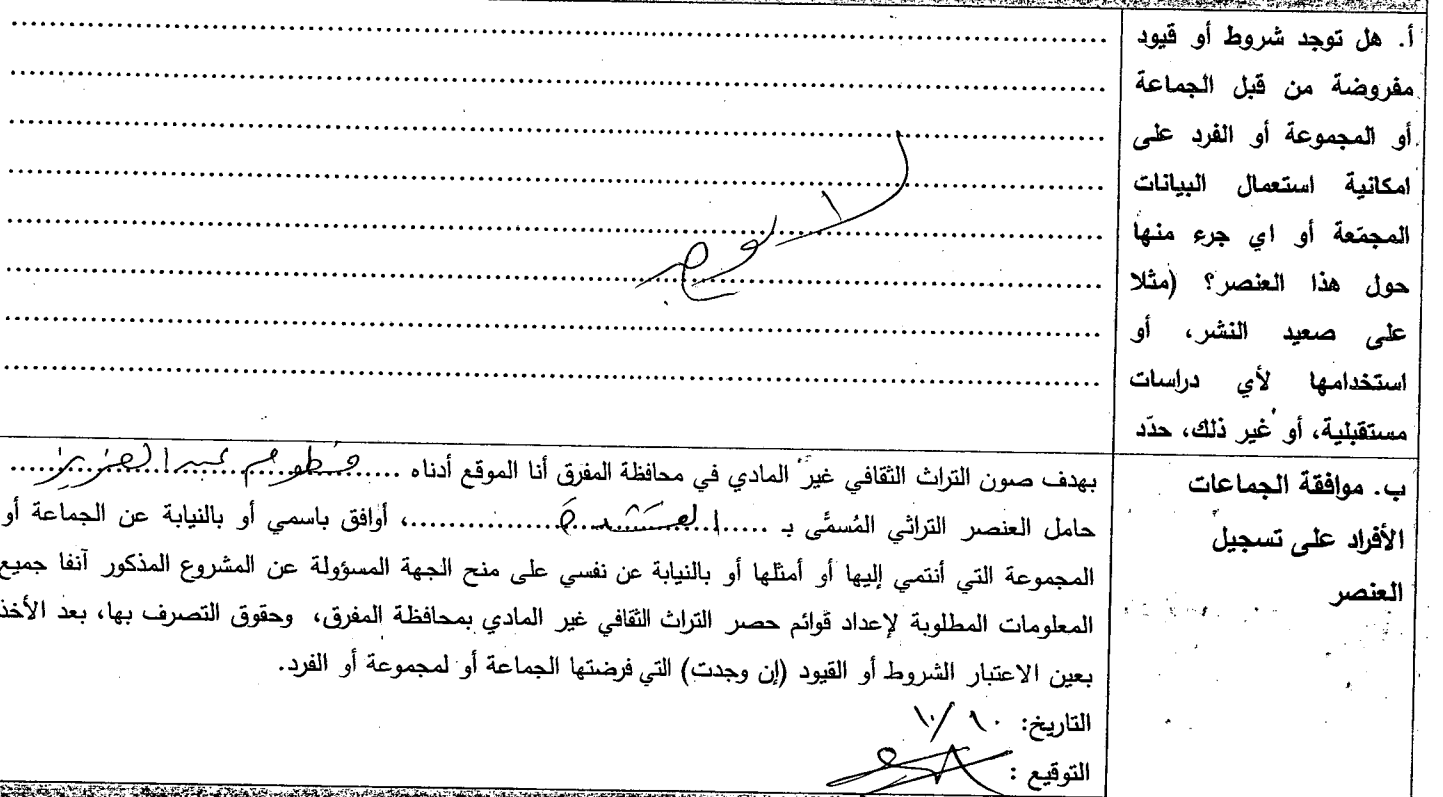 أ. هل توجد شروط أو قيود
مفروضة من قبل الجماعة
أو المجموعة أو الفرد على
امكانية استعمال البيانات
المجمّعة أو اي جرء منها
حول هذا العنصر؟ (مثلا
على صعيد النشر، أو
استخدامها لأي دراسات
مستقبلية، أو غير ذلك، حدّد
لا يوجد
ب. موافقة الجماعات
الأفراد على تسجيل
العنصر
بهدف صون التراث الثقافي غير المادي في محافظة المفرق أنا الموقع أدناه ..... عبد العزيز .....
حامل العنصر التراثي المُسمَّى بـ ..... ، أوافق باسمي أو بالنيابة عن الجماعة أو
المجموعة التي أنتمي إليها أو أمثلها أو بالنيابة عن نفسي على منح الجهة المسؤولة عن المشروع المذكور آنفا جميع
المعلومات المطلوبة لإعداد قوائم حصر التراث الثقافي غير المادي بمحافظة المفرق، وحقوق التصرف بها، بعد الأخذ
بعين الاعتبار الشروط أو القيود (إن وجدت) التي فرضتها الجماعة أو لمجموعة أو الفرد.
التاريخ:
التوقيع :